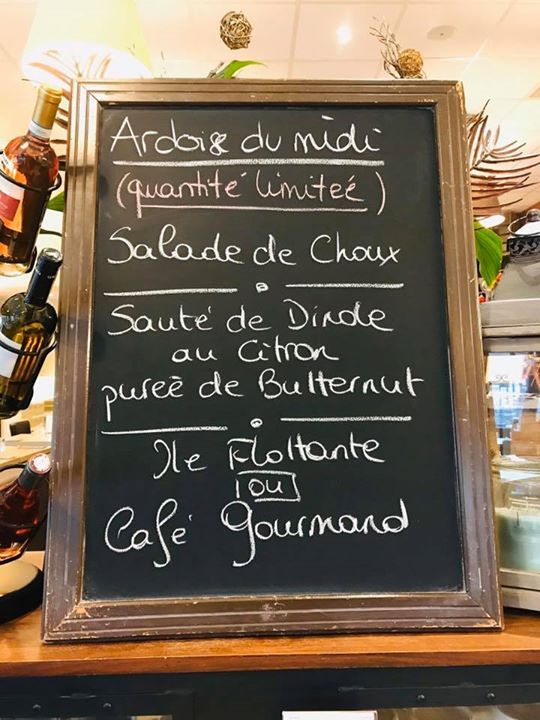 Ardoise du midi
(quantité limitée)
Salade de Choux
Sauté de Dinde
au Citron
pureè de Butternut
Ile Flottante
ou
Café Gourmand